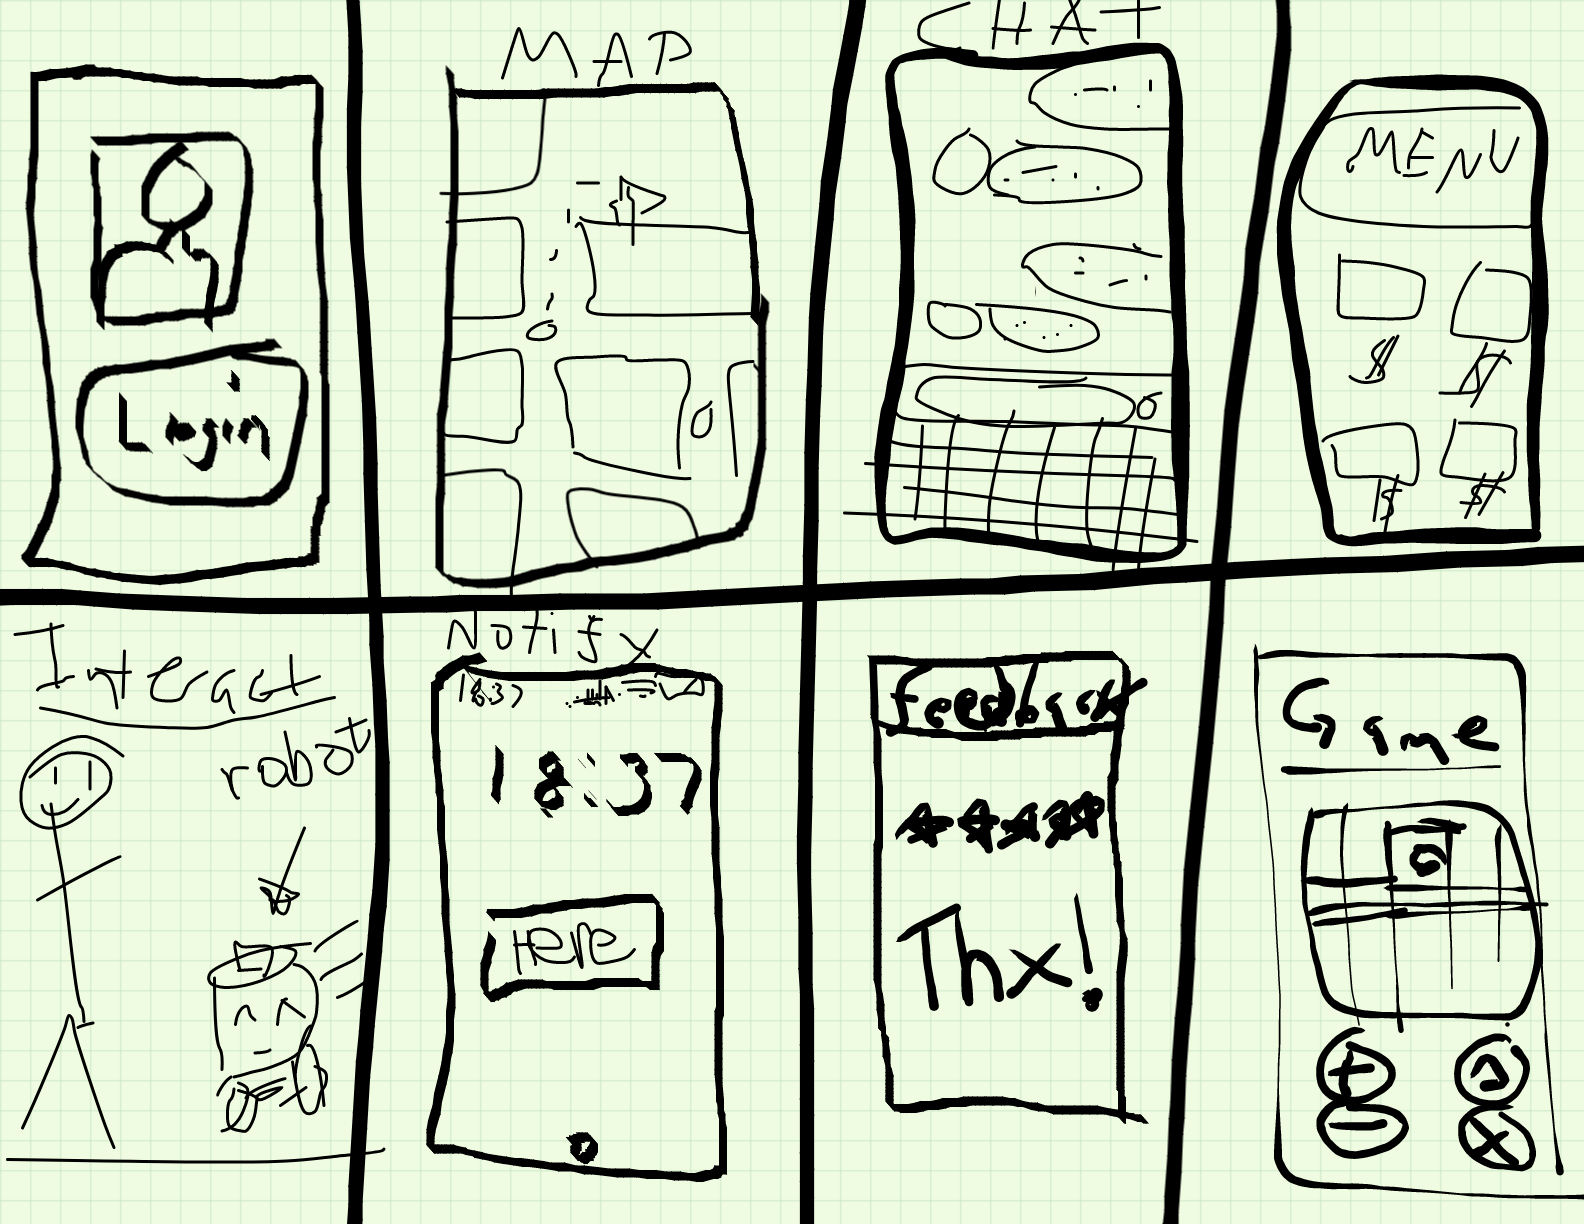 Login
MAP
CHAT
MENU
$ $
$ $
Interact
robot
Notify
18:37
18:37
Here
feedback
Thx!
Game